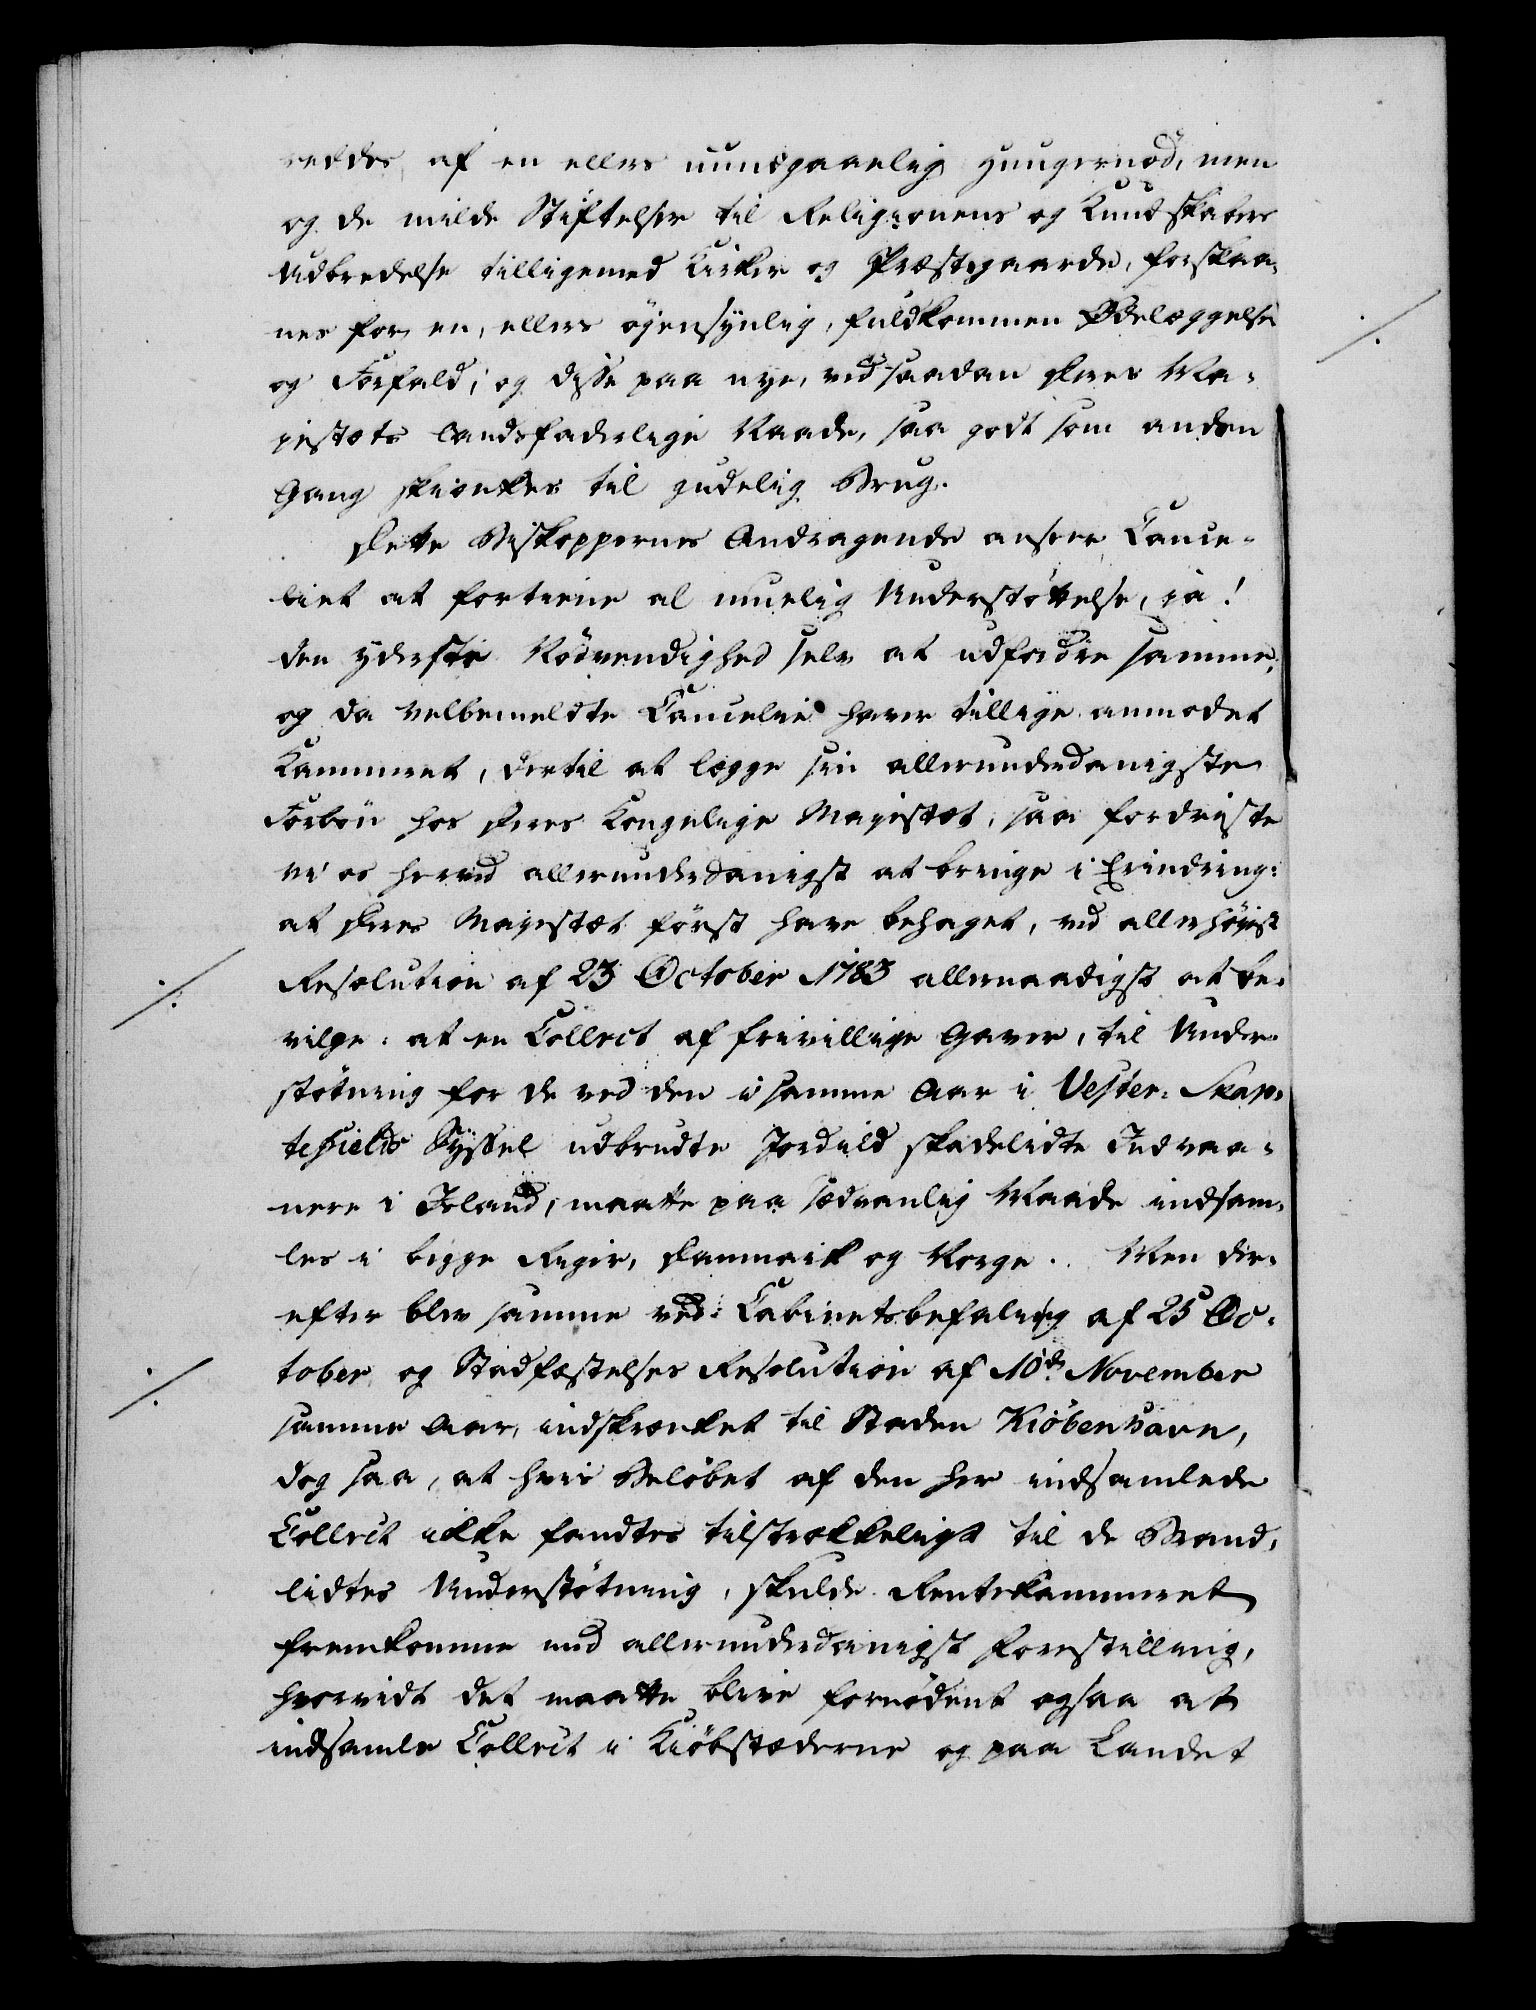 reddes af en ellers uundgaaelig Hungersnød, men
og de milde Stiftelser til Religionens og Kundskabers
Udbredelse tilligemed Kirker og Præstegaarde, forskaa-
nes for en, ellers øjensynlig, fuldkommen Ødelæggelse
og Forfald; og disse paa nye, ved saadan Deres Ma-
jestæts landsfaderlige Naade, saa godt som anden
Gang skienkes til gudelig Brug.
Dette Biskoppernes Andragende ansees Cance-
liet at fortiene al muelig Understøttelse, ja!
den yderste Nødvendighed selv at udfordre samme,
og da velbemeldte Cancelie haver tillige anmodet
Kammeret, dertil at lægge sin allerunderdanigste
Forbøn hos Deres Kongelige Majestæt, saa fordriste
vi os herved allerunderdanigst at bringe i Erindring:
at Deres Majestæt først have behaget, ved allerhøjest
Resolution af 23 October 1783 allernaadigst at be-
vilge: at en Collect af frivillige Gaver, til Under-
støtning for de ved den i samme Aar i Vester-Skap-
tefields Syssel udbrudte Jordild skadelidte Indvaa-
nere i Island, maatte paa sædvanlig Maade indsam-
les i begge Riger, Danmark og Norge. Men der-
efter blev samme ved Cabinetsbefaling af 25 Oc-
tober og Stadfæstelses Resolution af 10de November
samme Aar, indskrænket til Staden Kiøbenhavn,
dog saa, at hvis Beløbet af den her indsamlede
Collect ikke fandtes tilstrækkeligt til de Brand-
lidtes Understøtning, skulde Rentekammeret
fremkomme med allerunderdanigst Forestilling,
hvorvidt det maatte blive fornødent ogsaa at
indsamle Collect i Kiøbstæderne og paa Landet